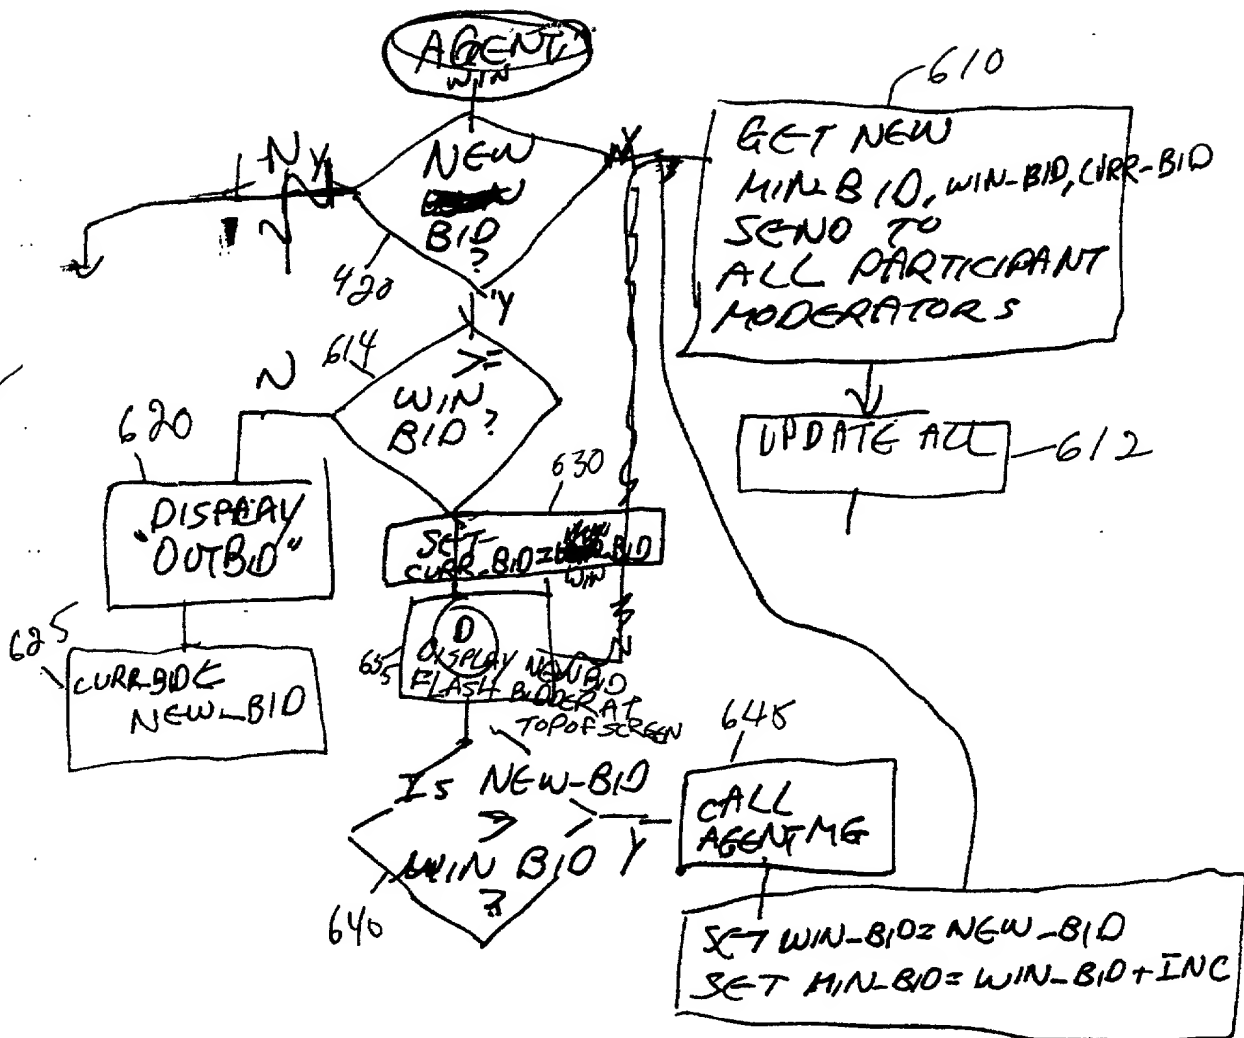 AGENT
WIN
610
GET NEW
MIN_BID, WIN_BID, CURR_BID
SEND TO
ALL PARTICIPANT
MODERATORS
N Y
N
NEW
BID
?
420
Y
UPDATE ALL
612
614
>=
WIN
BID?
N
620
DISPLAY
"OUTBID"
625
CURR_BID<
NEW_BID
630
SET
CURR_BID=
WIN
_BID
635
D
DISPLAY
FLASH
NEW BID
BIDDER AT
TOP OF SCREEN
N
IS NEW_BID
>
WIN BID
?
640
Y
645
CALL
AGENTMG
SET WIN_BID=NEW_BID
SET MIN_BID=WIN_BID+INC